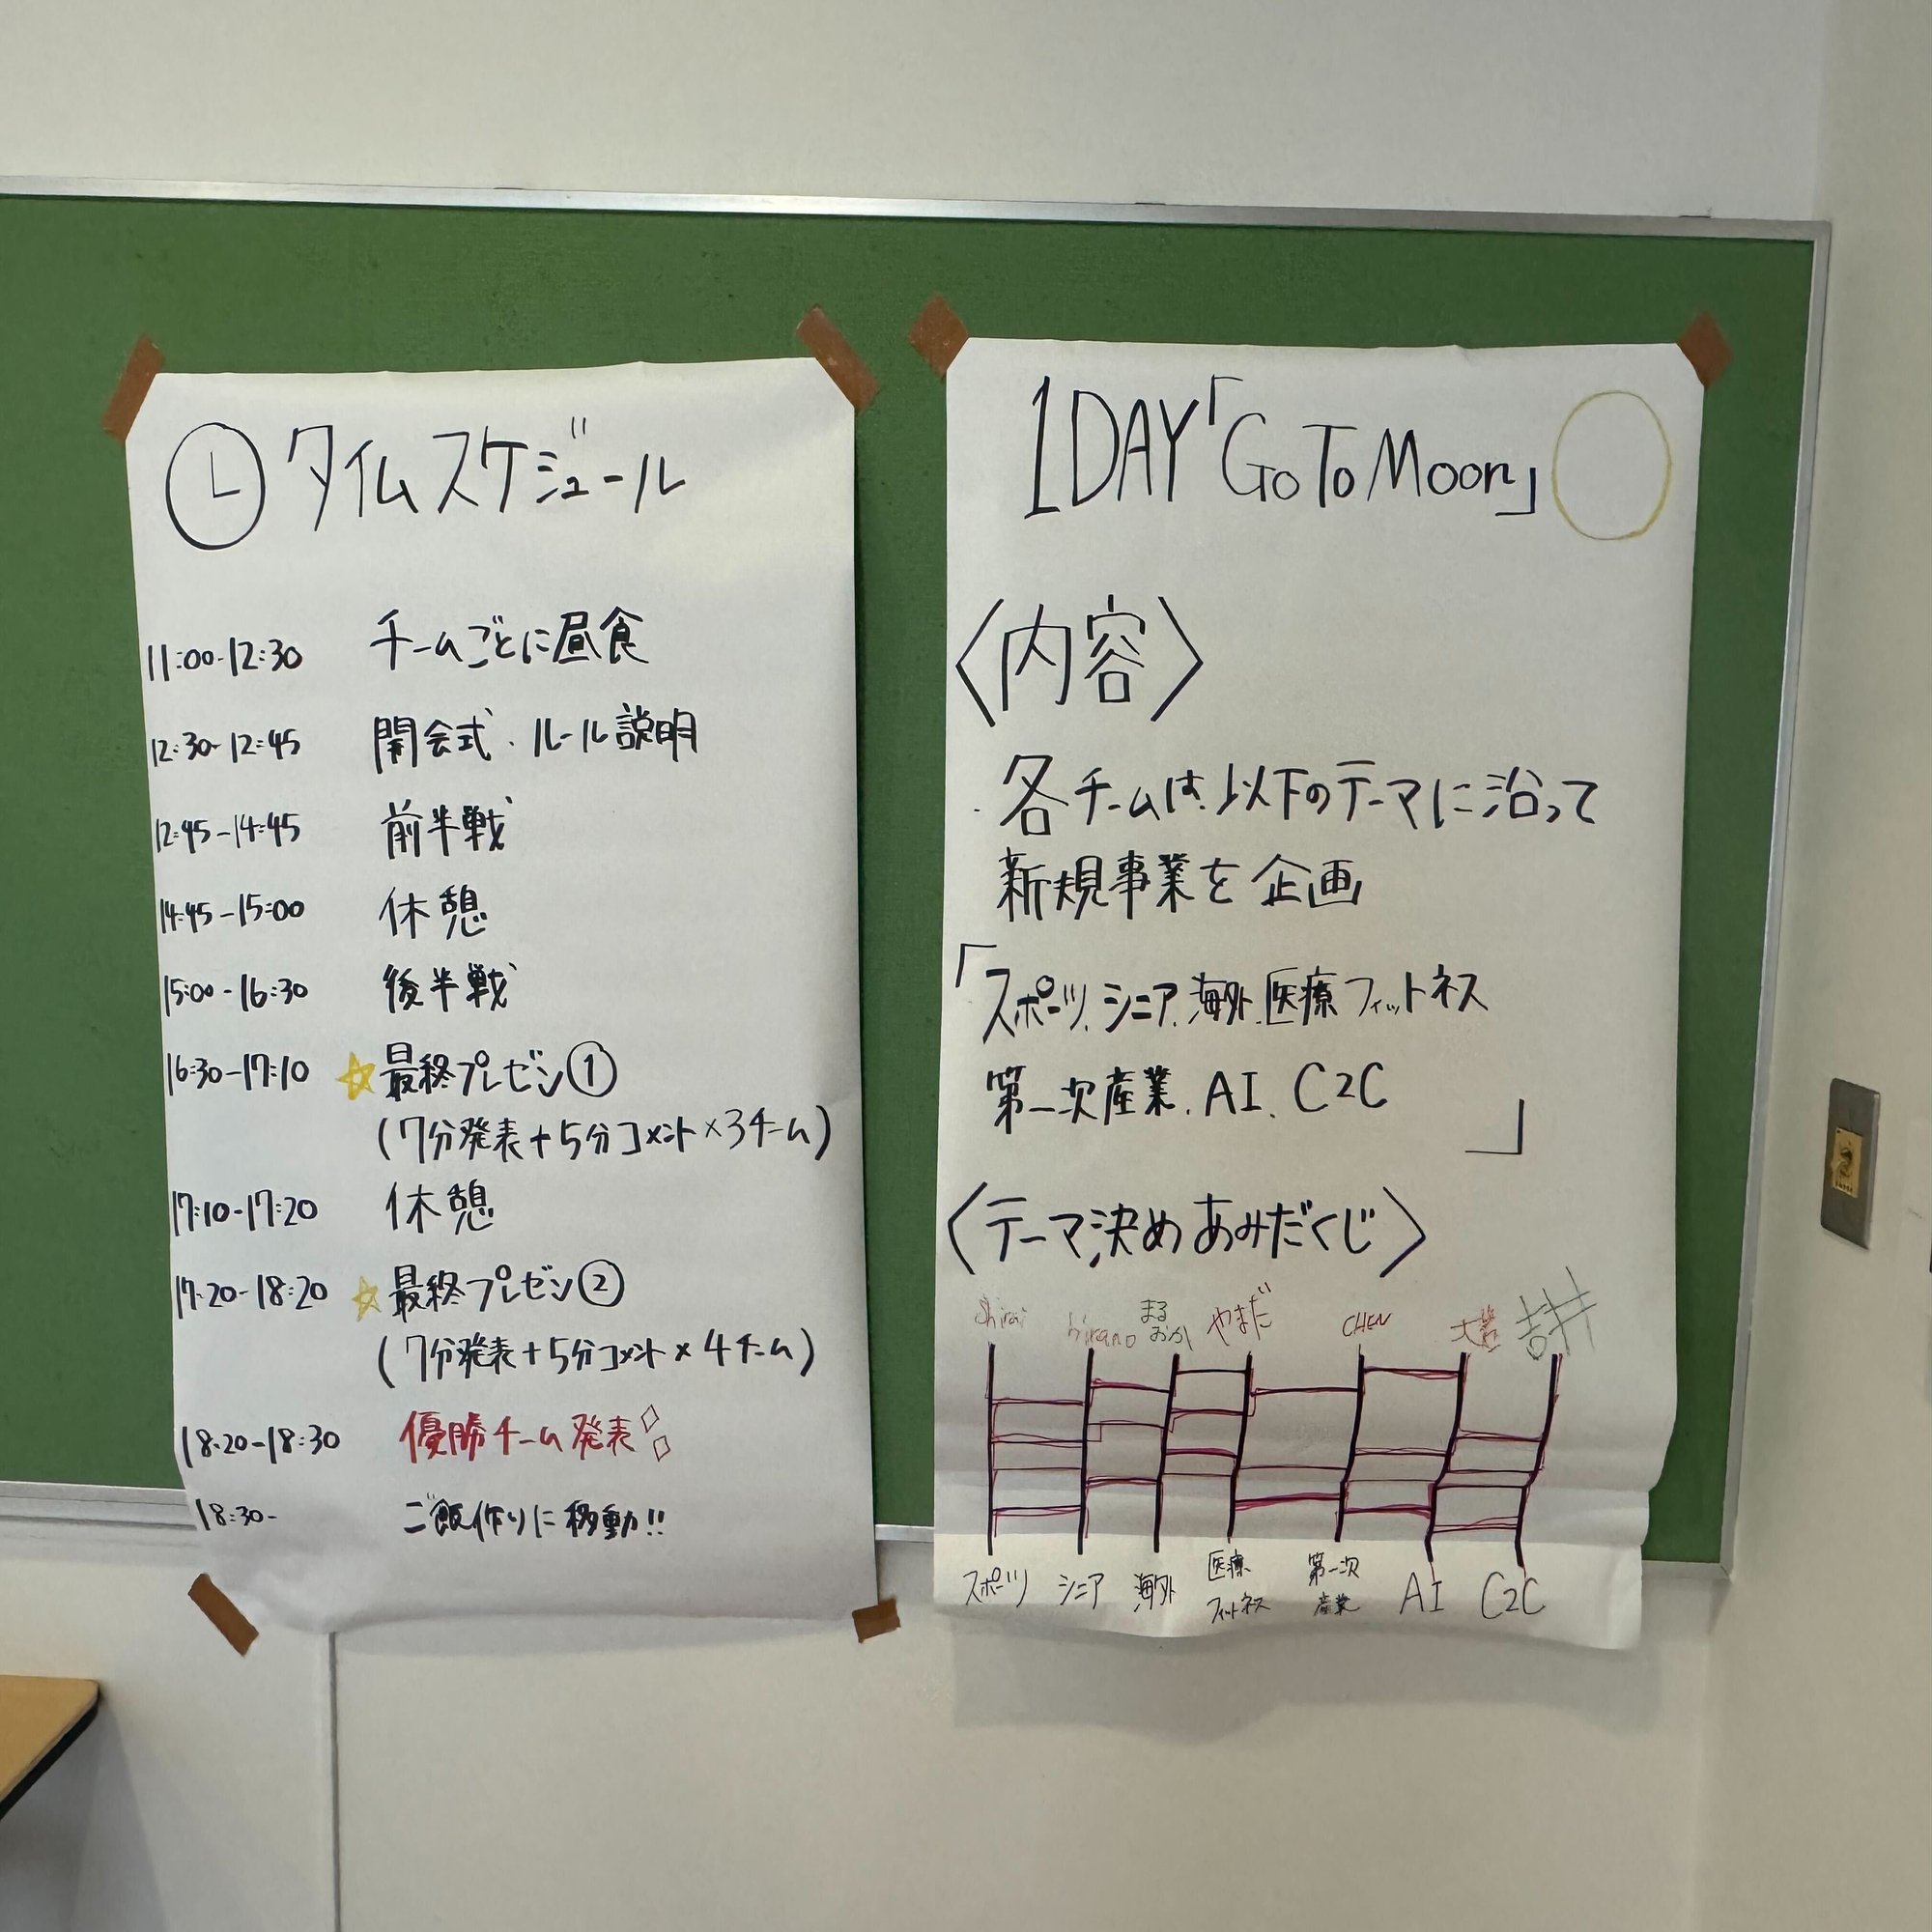 タイムスケジュール
11:00-12:30 チームごとに昼食
12:30-12:45 開会式・ルール説明
12:45-14:45 前半戦
14:45-15:00 休憩
15:00-16:30 後半戦
16:30-17:10 最終プレゼン①
(7分発表+5分コメント×3チーム)
17:10-17:20 休憩
17:20-18:20 最終プレゼン②
(7分発表+5分コメント×4チーム)
18:20-18:30 優勝チーム発表
18:30- ご飯作りに移動!!
1DAY「Go To Moon」
〈内容〉
・各チームは、以下のテーマに沿って
新規事業を企画
「スポーツ、シニア、海外、医療フィットネス
第一次産業、AI、C2C
」
〈テーマ決めあみだくじ〉
shirai hirano まるおか やまだ CHEN 大岩 吉井
スポーツ シニア 海外 医療フィットネス 第一次産業 AI C2C